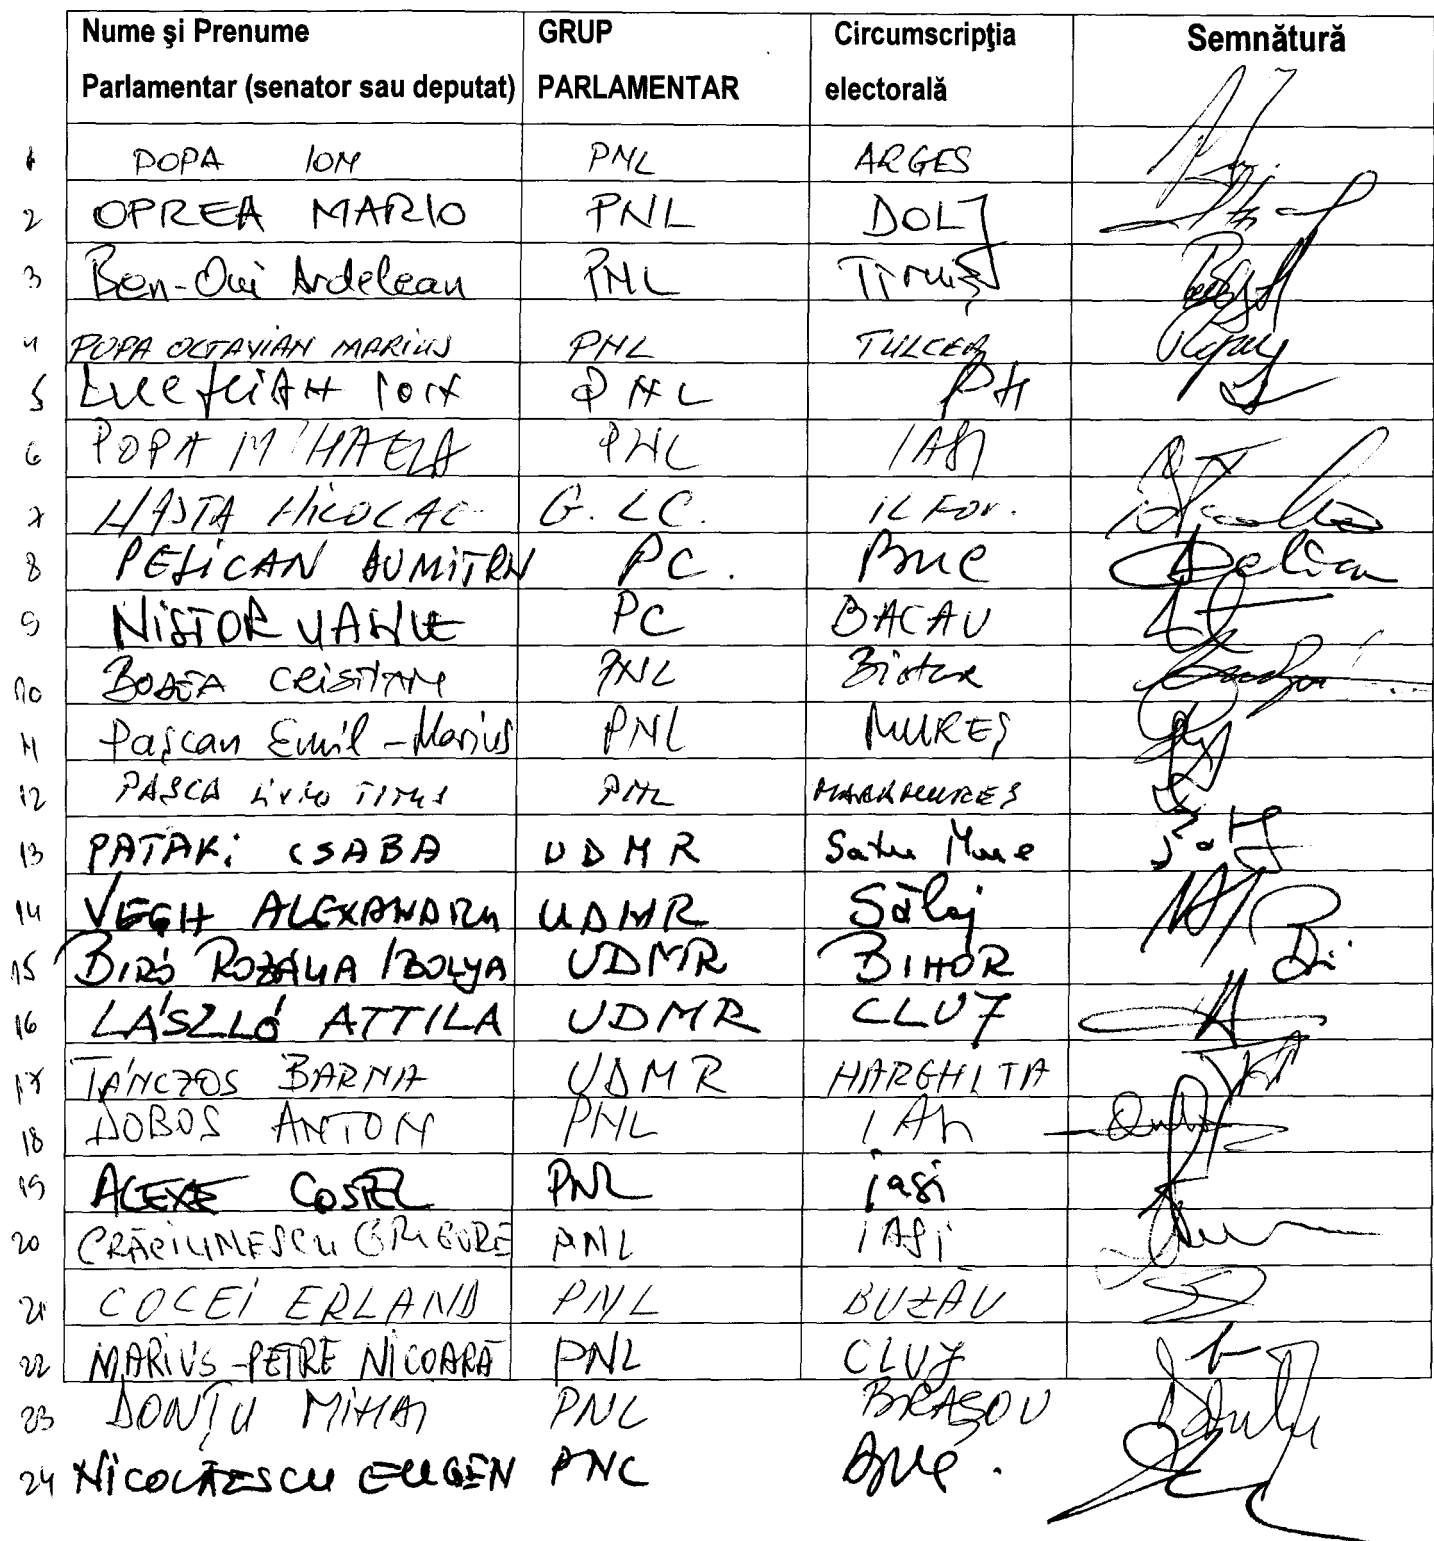 Nume și Prenume GRUP Circumscripția Semnătură
Parlamentar (senator sau deputat) PARLAMENTAR electorală
1 POPA ION PNL ARGES
2 OPREA MARIO PNL DOLJ
3 Ben-Oni Ardelean PNL Timiș
4 POPA OCTAVIAN MARIUS PNL TULCEA
5 ION PNL PH
6 POPA MIHAELA PNL IASI
7 NASTA NICOLAE G. LC. ILFOV.
8 PELICAN DUMITRU PC. BUC
9 NISTOR VASILE PC BACAU
10 BODEA CRISTIAN PNL Bistrița
11 Pașcan Emil-Marius PNL MUREȘ
12 PASCA LIVIU TITUS PNL MARAMUREȘ
13 PATAKI CSABA UDMR Satu Mare
14 VEGH ALEXANDRU UDMR Sălaj
15 BIRÓ ROZÁLIA IBOLYA UDMR BIHOR
16 LÁSZLÓ ATTILA UDMR CLUJ
17 TÁNCZOS BARNA UDMR HARGHITA
18 DOBOS ANTON PNL IASI
19 ALEXE COSTEL PNL iasi
20 CRĂCIUNESCU GRIGORE PNL IAȘI
21 COCEI ERLAND PNL BUZĂU
22 MARIUS-PETRE NICOARĂ PNL CLUJ
23 DONȚU MIHAI PNL BRAȘOV
24 NICOLĂESCU EUGEN PNL BUC.